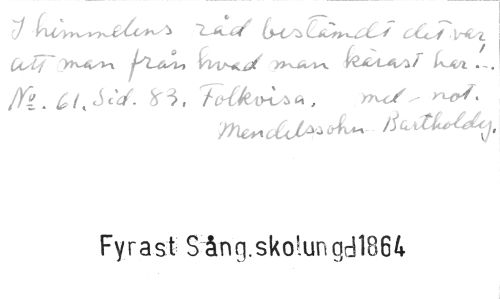 I himmelens råd bestämdt det var,
att man från hvad man kärast har...
No. 61. Sid. 83. Folkvisa. med not.
Mendelssohn Bartholdy.
Fyrast Sång.skolungd1864